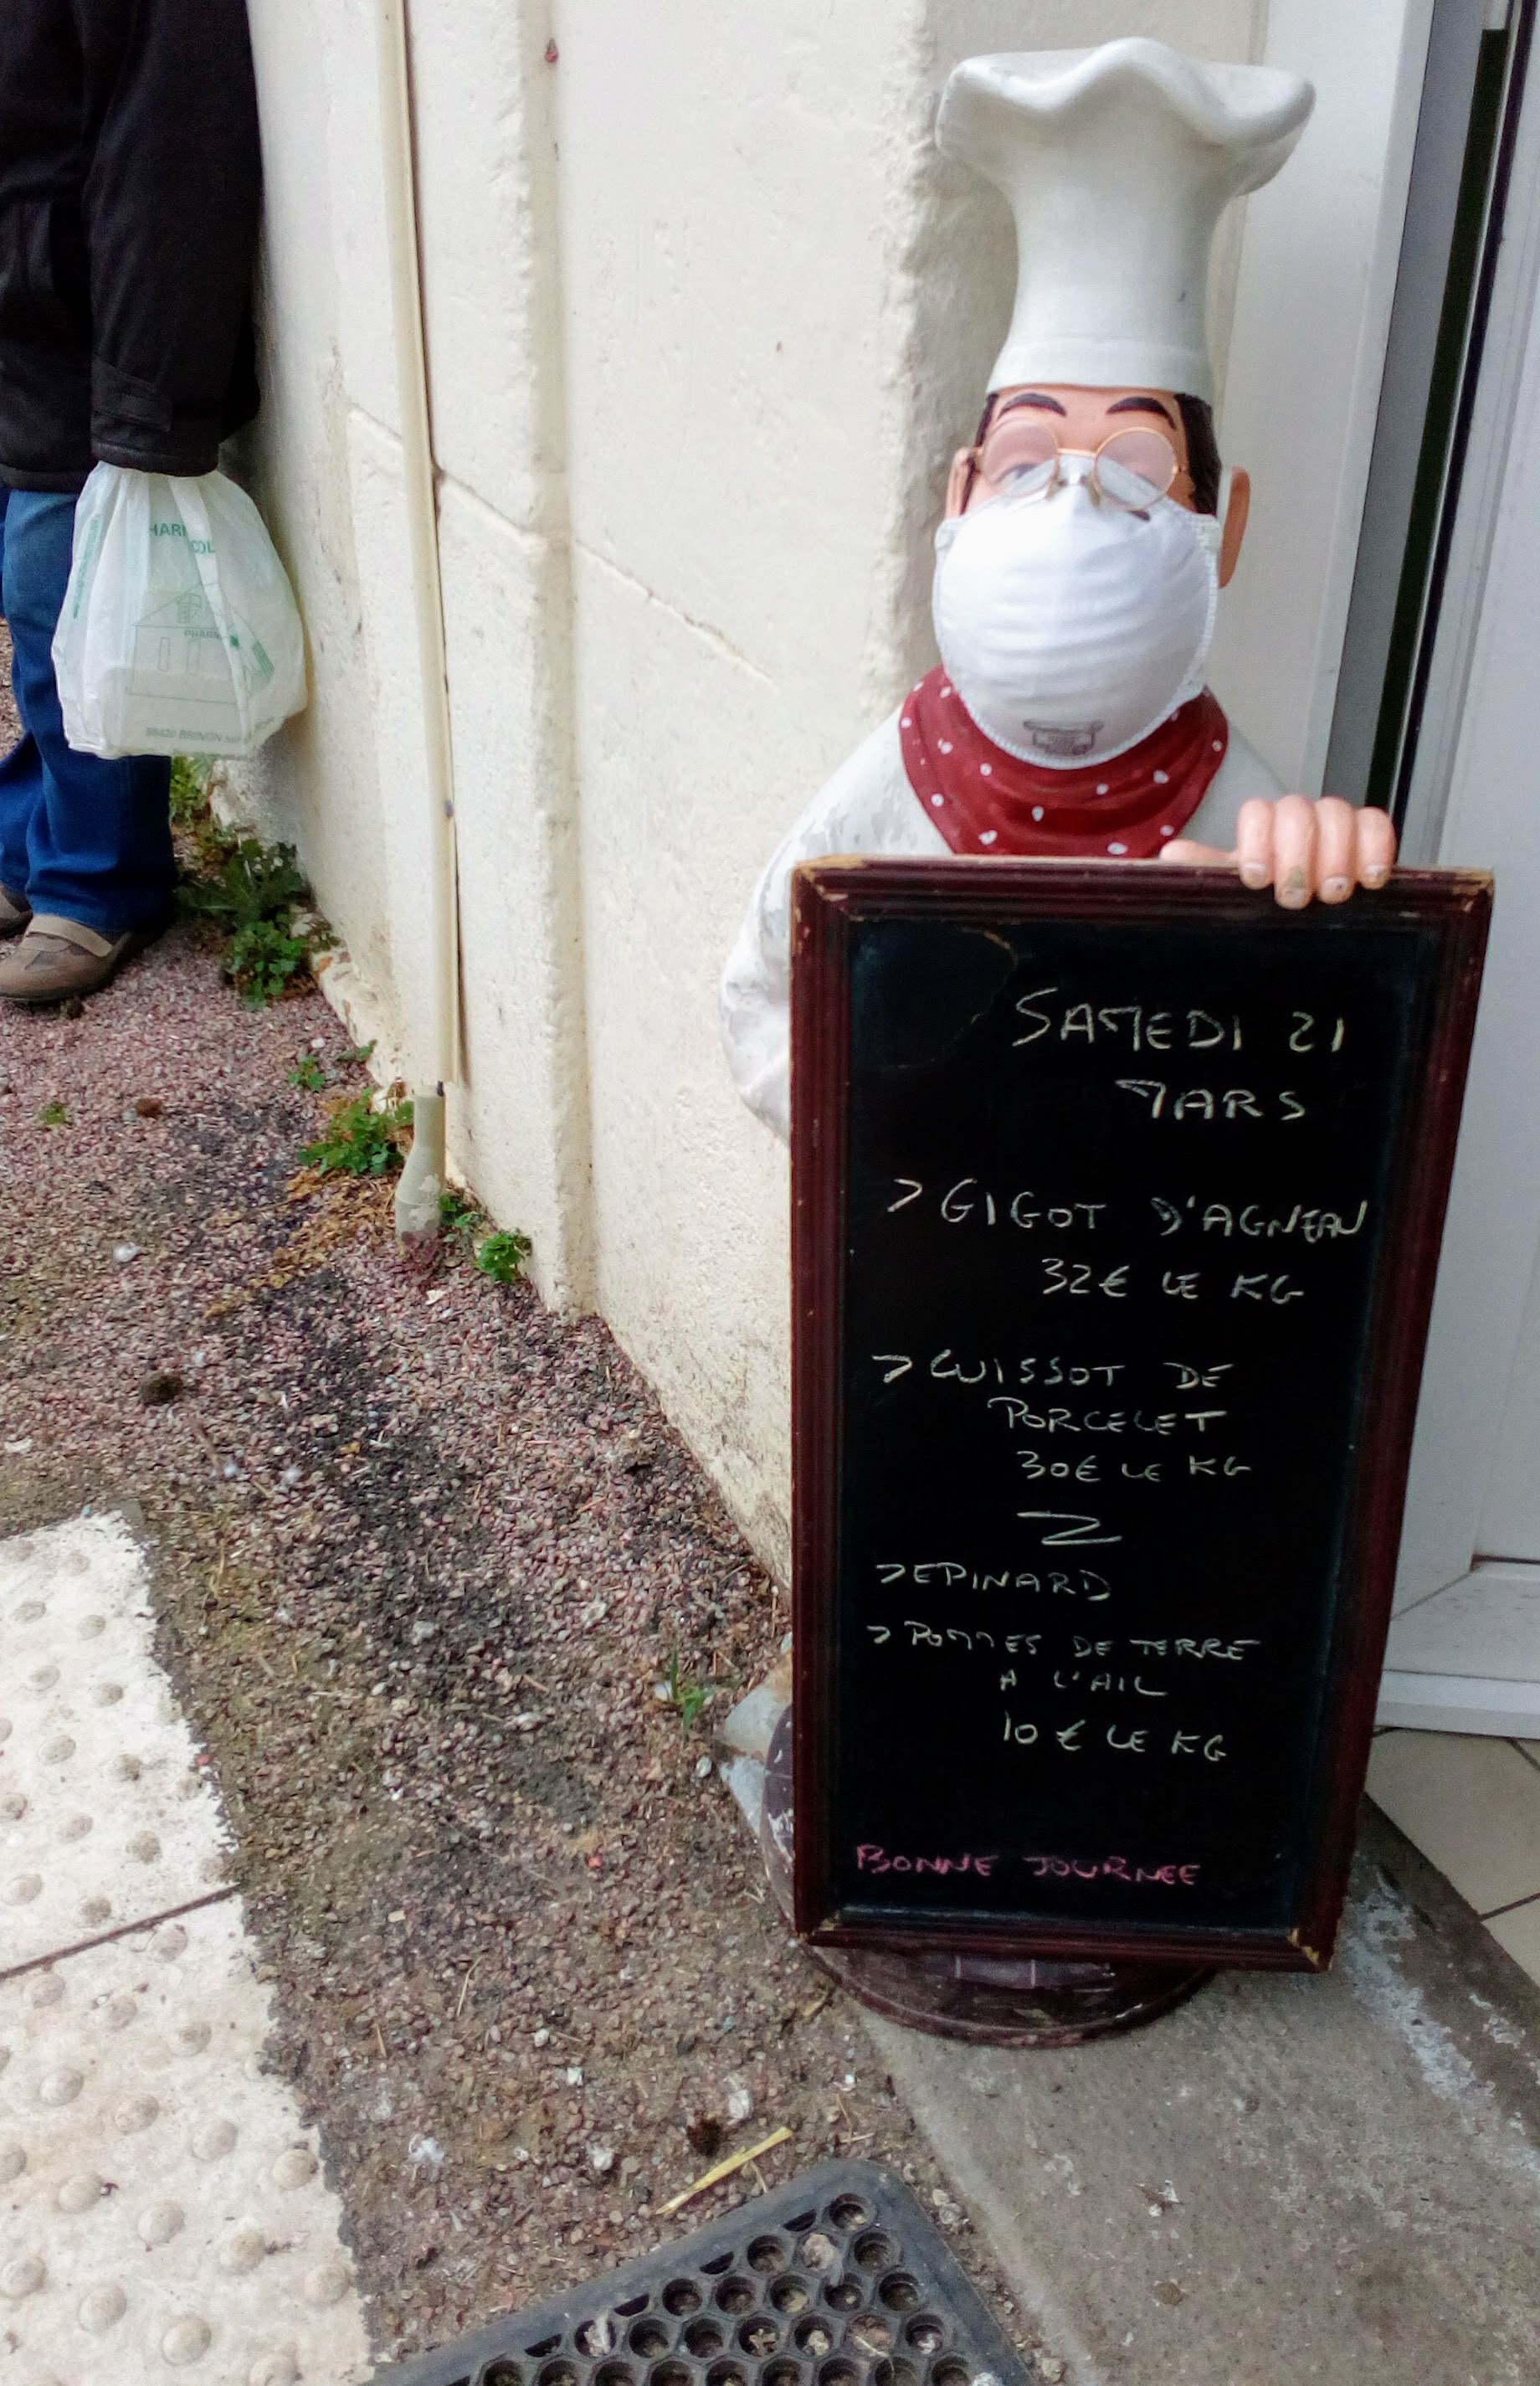 PHARM
58420 BRINON
SAMEDI 21
MARS
> GIGOT D'AGNEAU
32€ LE KG
> CUISSOT DE
PORCELET
30€ LE KG
> EPINARD
> POMMES DE TERRE
A L'AIL
10€ LE KG
BONNE JOURNEE